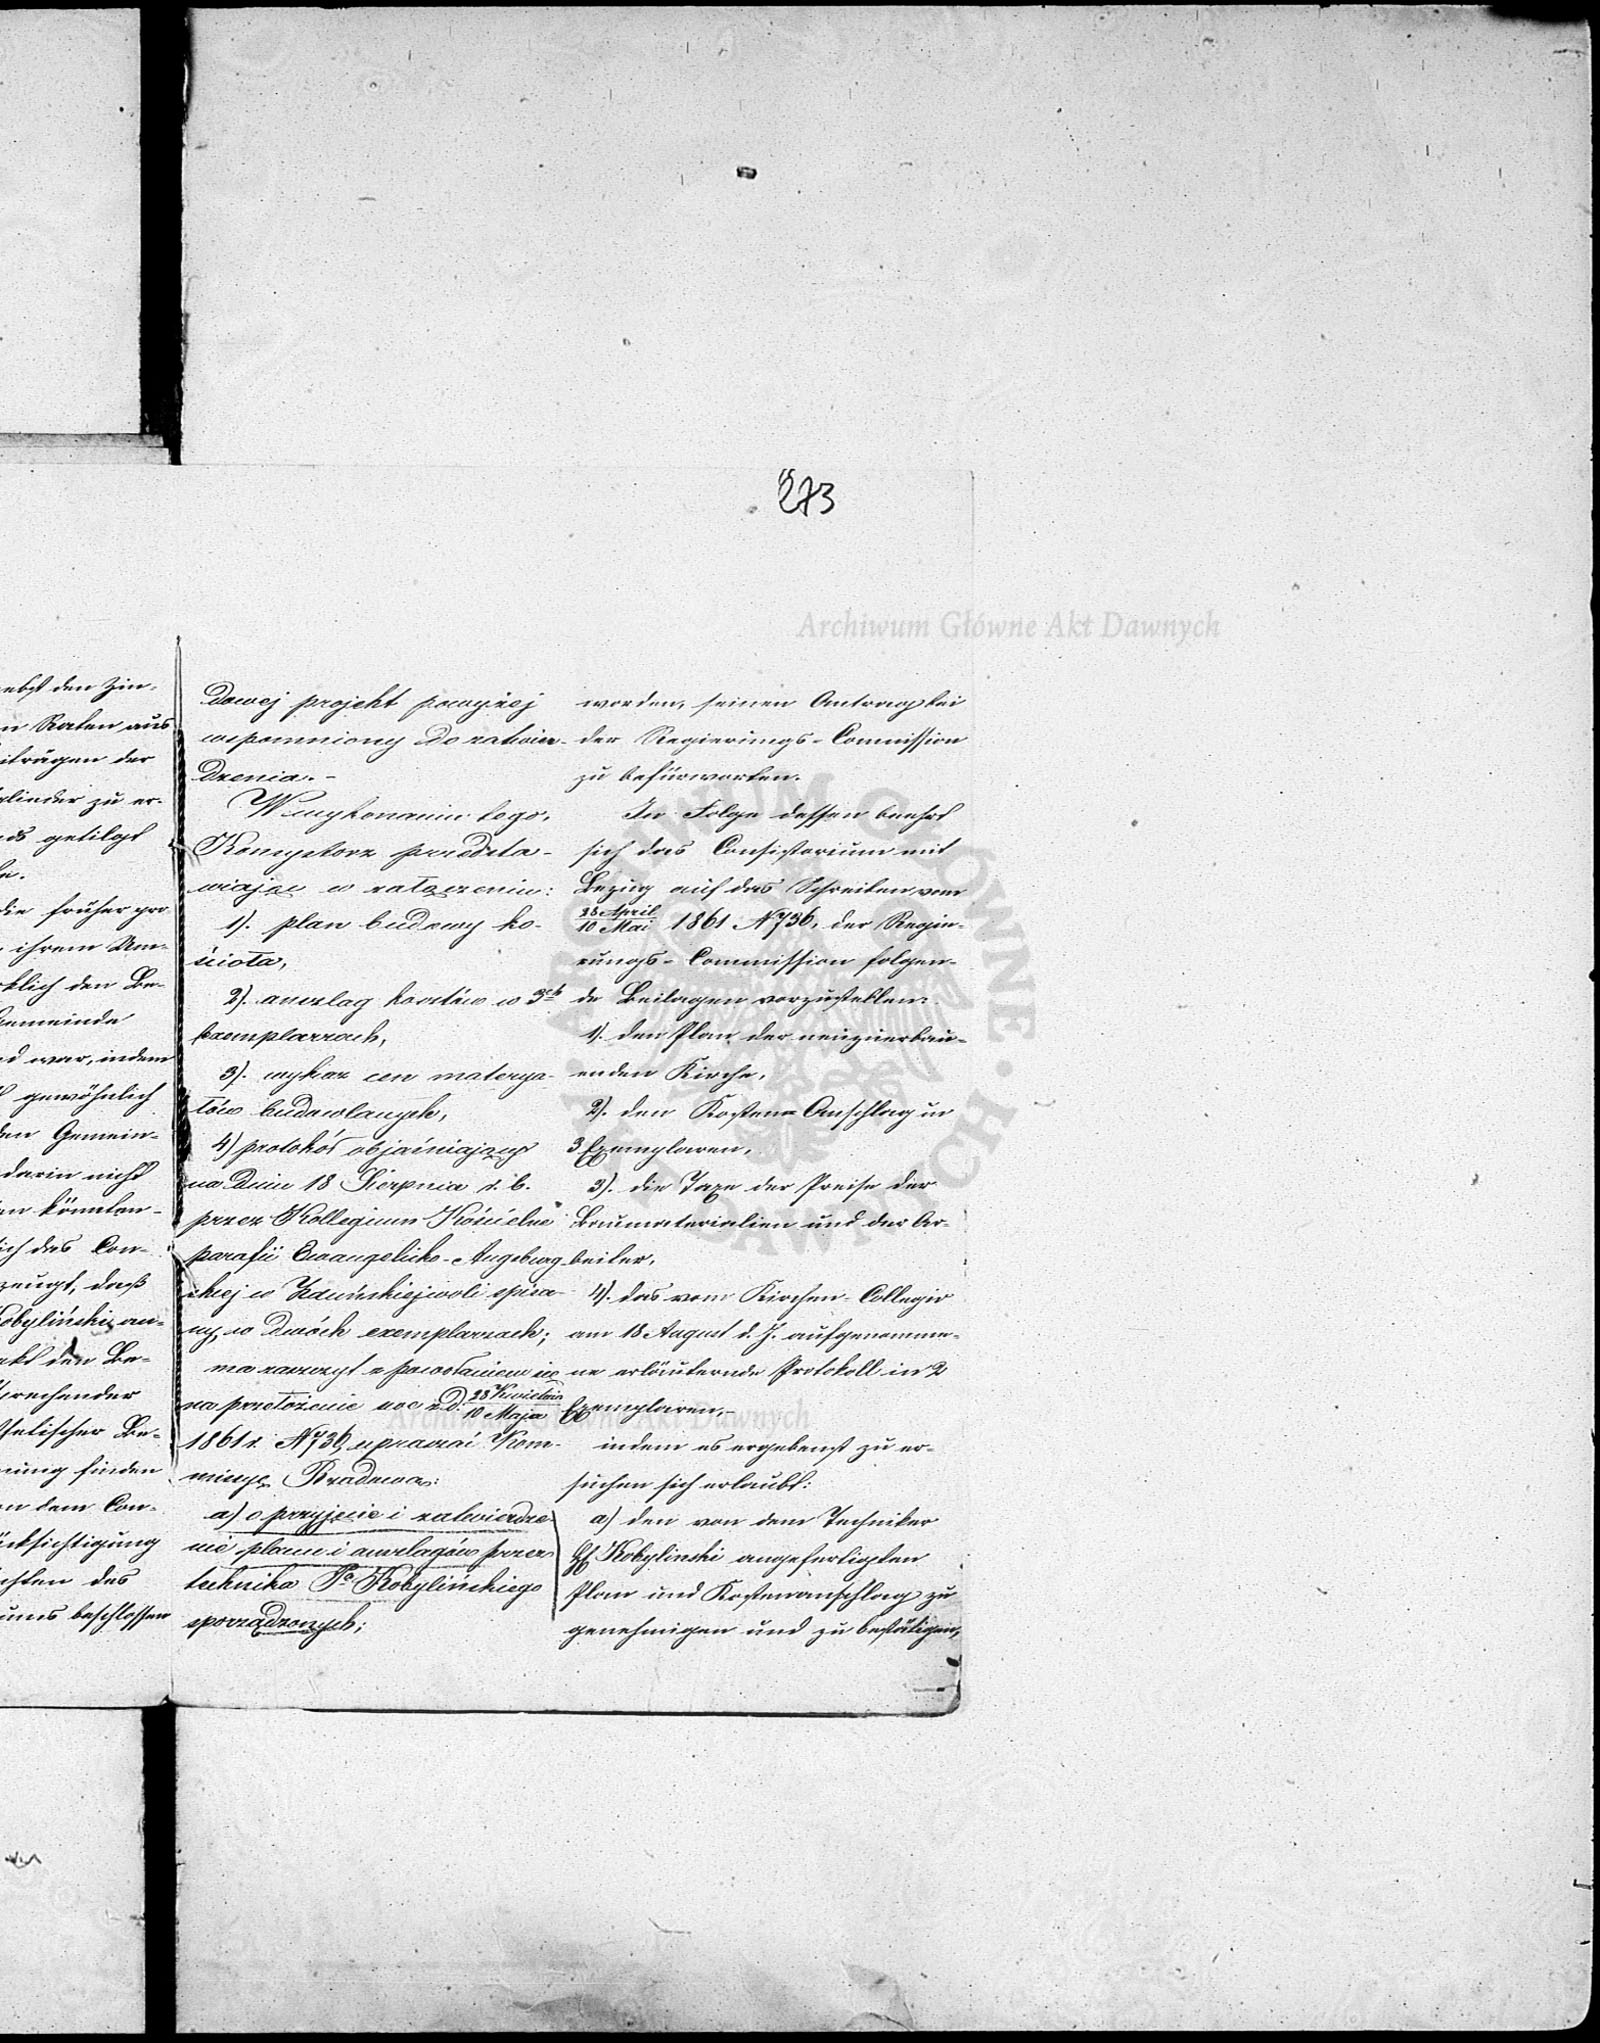 273
Archiwum Główne Akt Dawnych
ebst den Zin-
n Raten aus
iträgen der
glieder zu er-
ds getilgt
die früher pro-
ihrem Um-
klich den Be-
Gemeinde
d war, indem
gewöhnlich
den Gemein-
darin nicht
en könnten-
ich das Con-
zeugt, daß
Kobyliński an-
akt den Be-
sprechender
Be-
nung finden
on dem Con-
ücksichtigung
chten des
ums beschlossen
dowej projekt powyżej
wspomniony do zatwier-
dzenia.-
W wykonaniu tego,
Konsystorz przedsta-
wiając w załączeniu:
1). plan budowy ko-
ścioła,
2). anszlag kosztów w 3ch
Exemplarzach,
3). wykaz cen materya-
łów budowlanych,
4) protokół objaśniający
na dniu 18 Sierpnia r. b.
przez Kollegium Kościelne
parafii Ewangelicko-Augsburg-
skiej w Zduńskiejwoli spisa-
ny, w dwóch exemplarzach;
ma zaszczyt z powołaniem się
na przełożenie swe z d. 28 Kwietnia / 10 Maja
1861 r. N 736, upraszać Kom-
missyę Rządową:
a) o przyjęcie i zatwierdze-
nie planu i anszlagów przez
technika Pa Kobylińskiego
sporządzonych;
worden, seinen Antrag bei
der Regierungs-Commission
zu befürworten.
In Folge dessen beehrt
sich das Consistorium mit
Bezug auf das Schreiben vom
28 April / 10 Mai 1861 N 736, der Regie-
rungs-Commission folgen-
de Beilagen vorzustellen:
1). den Plan der neuzuerbau-
enden Kirche,
2). den Kosten-Anschlag in
3 Exemplaren,
3). die Taxe der Preise der
Baumaterialien und der Ar-
beiter,
4). das vom Kirchen-Collegio
am 18 August d. J. aufgenomme-
ne erläuternde Protokoll in 2
Exemplaren,-
indem es ergebenst zu er-
suchen sich erlaubt:
a) den von dem Techniker
H Kobylinski angefertigten
Plan und Kostenanschlag zu
genehmigen und zu bestätigen,
Archiwum Główne Akt Dawnych
ARCHIWUM GŁÓWNE AKT DAWNYCH